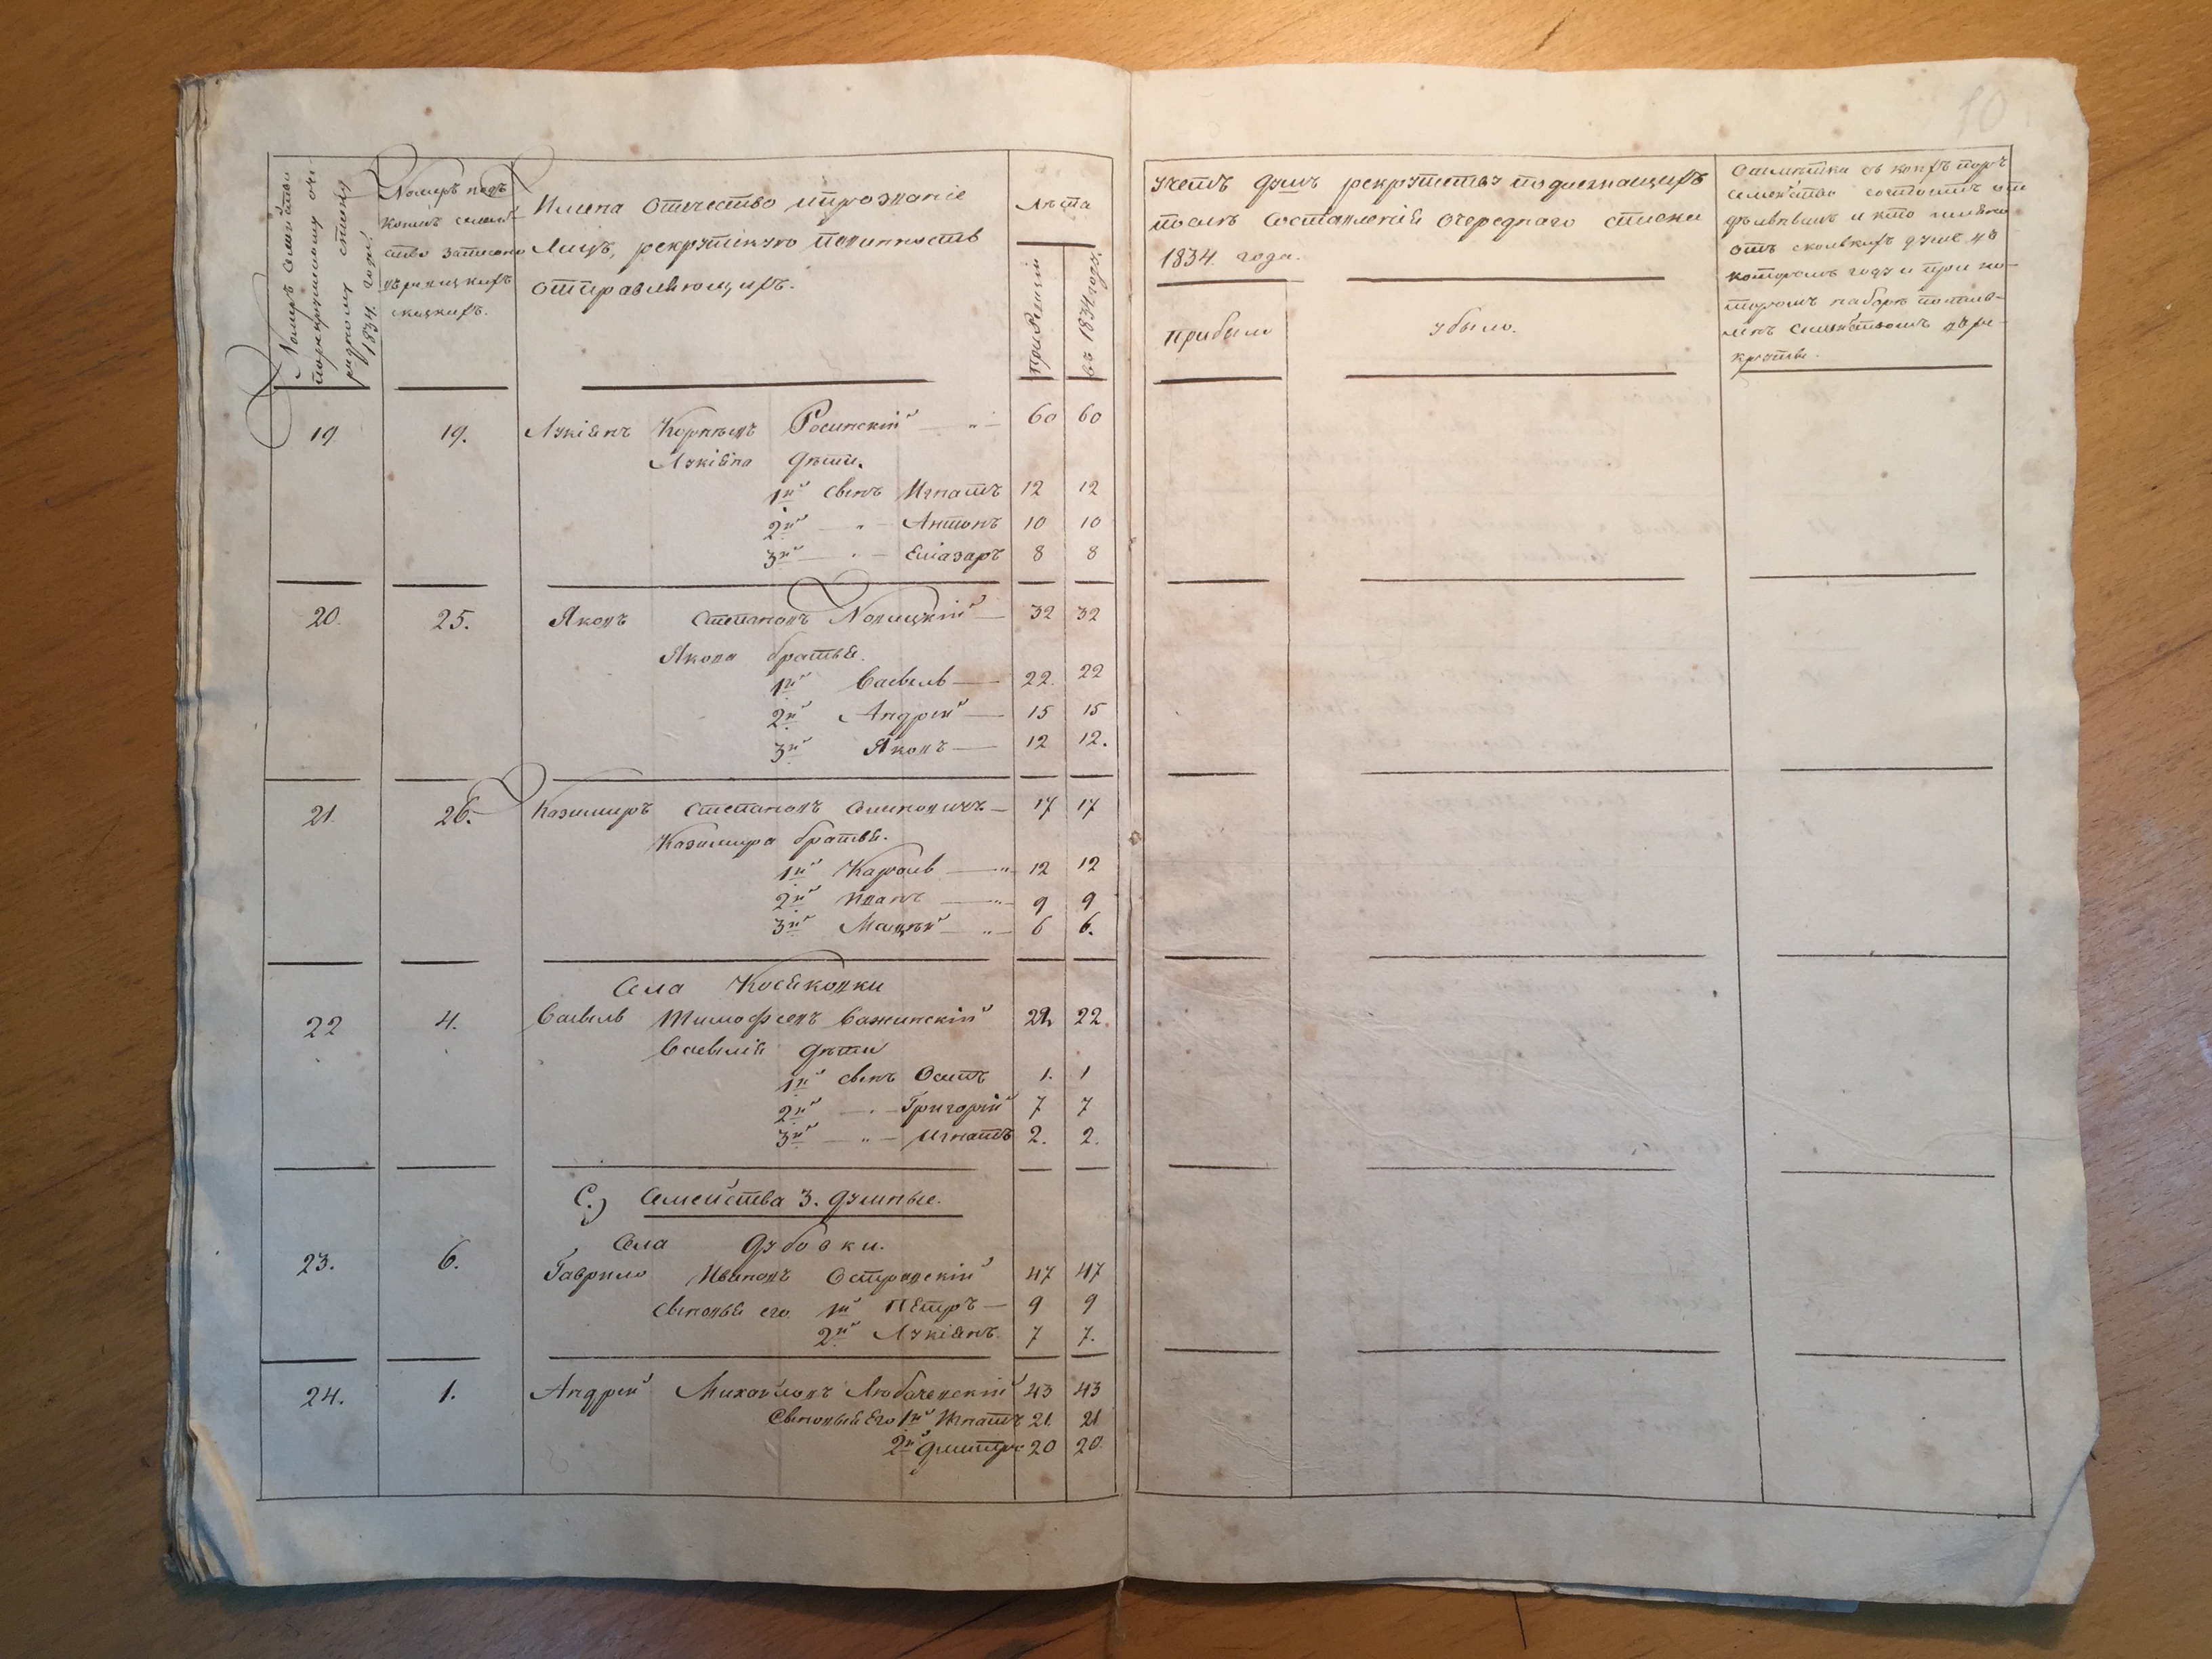 10
Номеръ семейства
по рекрутскому оче-
редному списку
1834. года.
Номеръ подъ
коимъ семей-
ство записано
въ ревизскихъ
сказкахъ.
Имена Отечество ипрозваніе
Лицъ, рекрутскую повинность
отправляющихъ.
Лѣта
При Ревизіи
въ 1834 году.
Учетъ душъ рекрутству подлежащихъ
послѣ составленія очереднаго списка
1834. года.
прибыло
убыло.
Отмѣтки съ коихъ поръ
семейство состоитъ от
дѣльнымъ и кто имѣнно
отъ сколькихъ душъ въ
которомъ году и при ко-
торомъ наборѣ поставл-
ленъ семействомъ въ ре-
круты.
19. 19. Лукіянъ Корнѣевъ Росинскій 60 60
Лукіяна дѣти.
1й сынъ Игнатъ 12 12
2й — " — Антонъ 10 10
3й — " — Еліазаръ 8 8
20. 25. Яковъ Степановъ Новицкій — 32 32
Якова братья.
1й Савель — 22. 22
2й Андрей — 15 15
3й Яковъ — 12 12.
21. 26. Казимиръ Степановъ Семновичъ — 17 17
Казимира братья.
1й Кароль — " — 12 12
2й Иванъ — " — 9 9
3й Мацѣй — " — 6 6.
Села Косяковки
22 4. Савель Тимофеевъ Сажинскій 22 22.
Савелія дѣти
1й сынъ Осипъ 1. 1
2й — " — Григорій 7 7
3й — " — Игнатъ 2. 2.
С.) Семейства 3. душные.
Села Дубовки.
23. 6. Гаврило Ивановъ Островскій 47 47
сыновья его 1й Петръ — 9 9
2й Лукіянъ. 7 7.
24. 1. Андрей Михайловъ Любачевскій 43 43
Сыновья Его 1й Игнатъ 21. 21
2й Дмитръ 20 20.